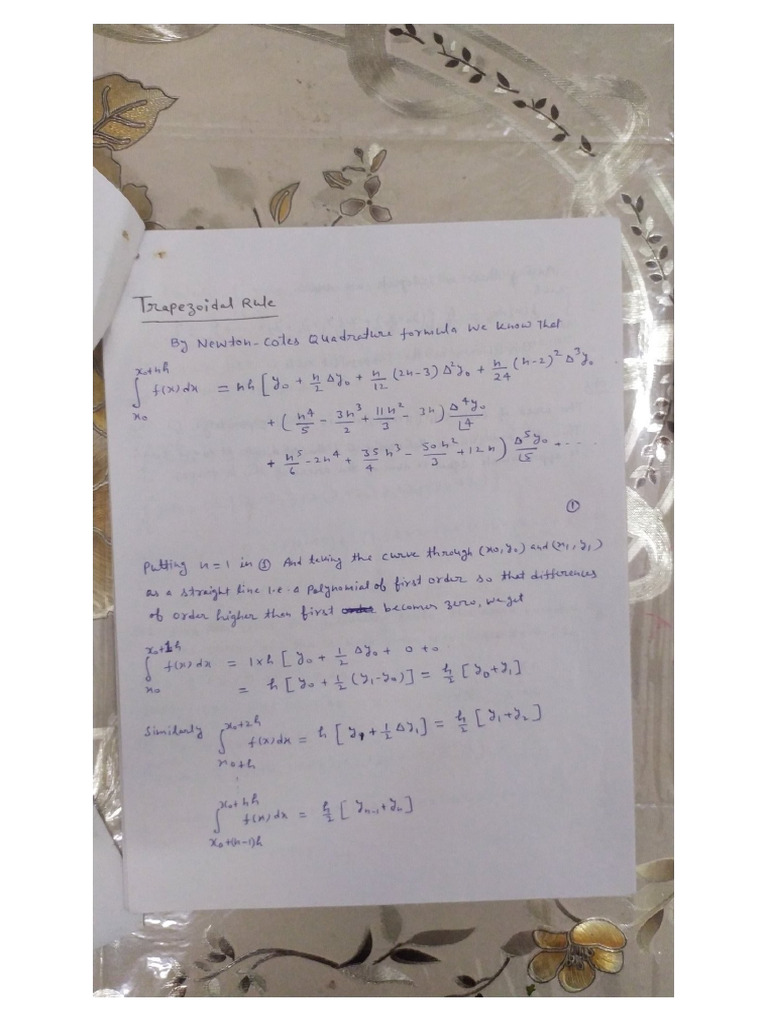 Trapezoidal Rule
By Newton-Cotes Quadrature formula we know that
∫_{x0}^{x+nh} f(x) dx = nh [ y0 + n/2 Δy0 + n/12 (2n-3) Δ²y0 + n/24 (n-2)² Δ³y0
+ ( n⁴/5 - 3n³/2 + 11n²/3 - 3n ) Δ⁴y0/∟4
+ n⁵/6 - 2n⁴ + 35/4 n³ - 50n²/3 + 12n ) Δ⁵y0/∟5 + - - -
①
Putting n=1 in ① And taking the curve through (x0, y0) and (x1, y1)
as a straight line i.e. a Polynomial of first order so that differences
of order higher then first becomes zero, we get
∫_{x0}^{x0+1h} f(x) dx = 1×h [ y0 + 1/2 Δy0 + 0 + 0
= h [ y0 + 1/2 (y1-y0) ] = h/2 [ y0+y1 ]
Similarly ∫_{x0+h}^{x0+2h} f(x) dx = h [ y1 + 1/2 Δy1 ] = h/2 [ y1+y2 ]
⋮
∫_{x0+(n-1)h}^{x0+nh} f(x) dx = h/2 [ y_{n-1} + y_n ]